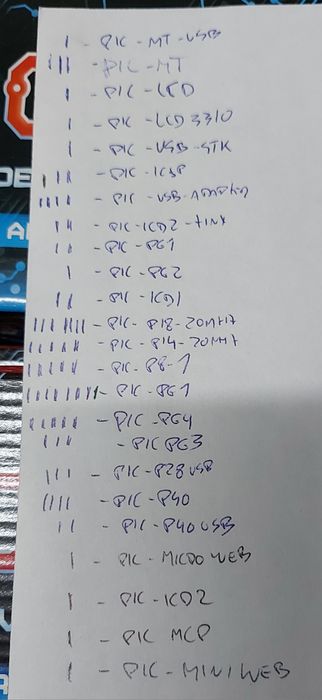 I - PIC-MT-USB
III - PIC-MT
I - PIC-LCD
I - PIC-LCD3310
I - PIC-USB-STK
III - PIC-ICSP
IIII - PIC-USB-
II - PIC-ICD2-TINY
II - PIC-PG1
I - PIC-PG2
II - PIC-ICD1
IIII IIII - PIC-P18-20MHZ
- PIC-P14-20MHZ
- PIC-P8-1
- PIC-PG1
- PIC-PG4
III - PIC PG3
III - PIC-P28USB
IIII - PIC-P40
II - PIC-P40USB
I - PIC-MICRO WEB
I - PIC-ICD2
I - PIC MCP
I - PIC-MINIWEB